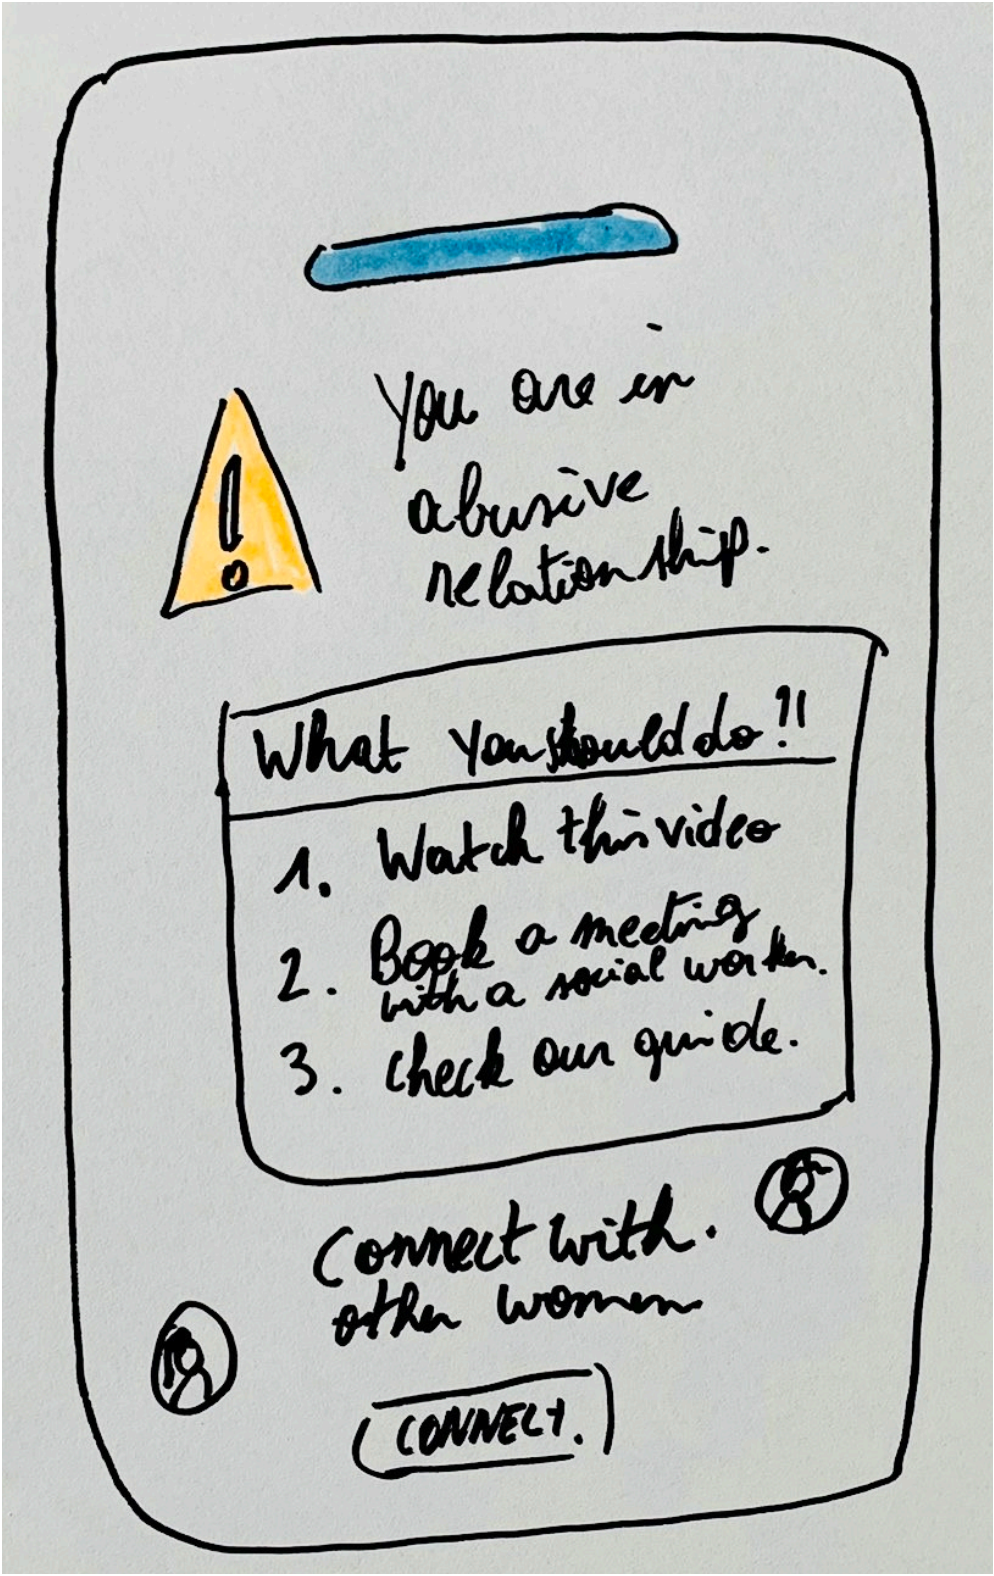 You are in
abusive
relationship.
What you should do?!
1. Watch this video
2. Book a meeting
with a social worker.
3. Check our guide.
Connect with.
other women
CONNECT.